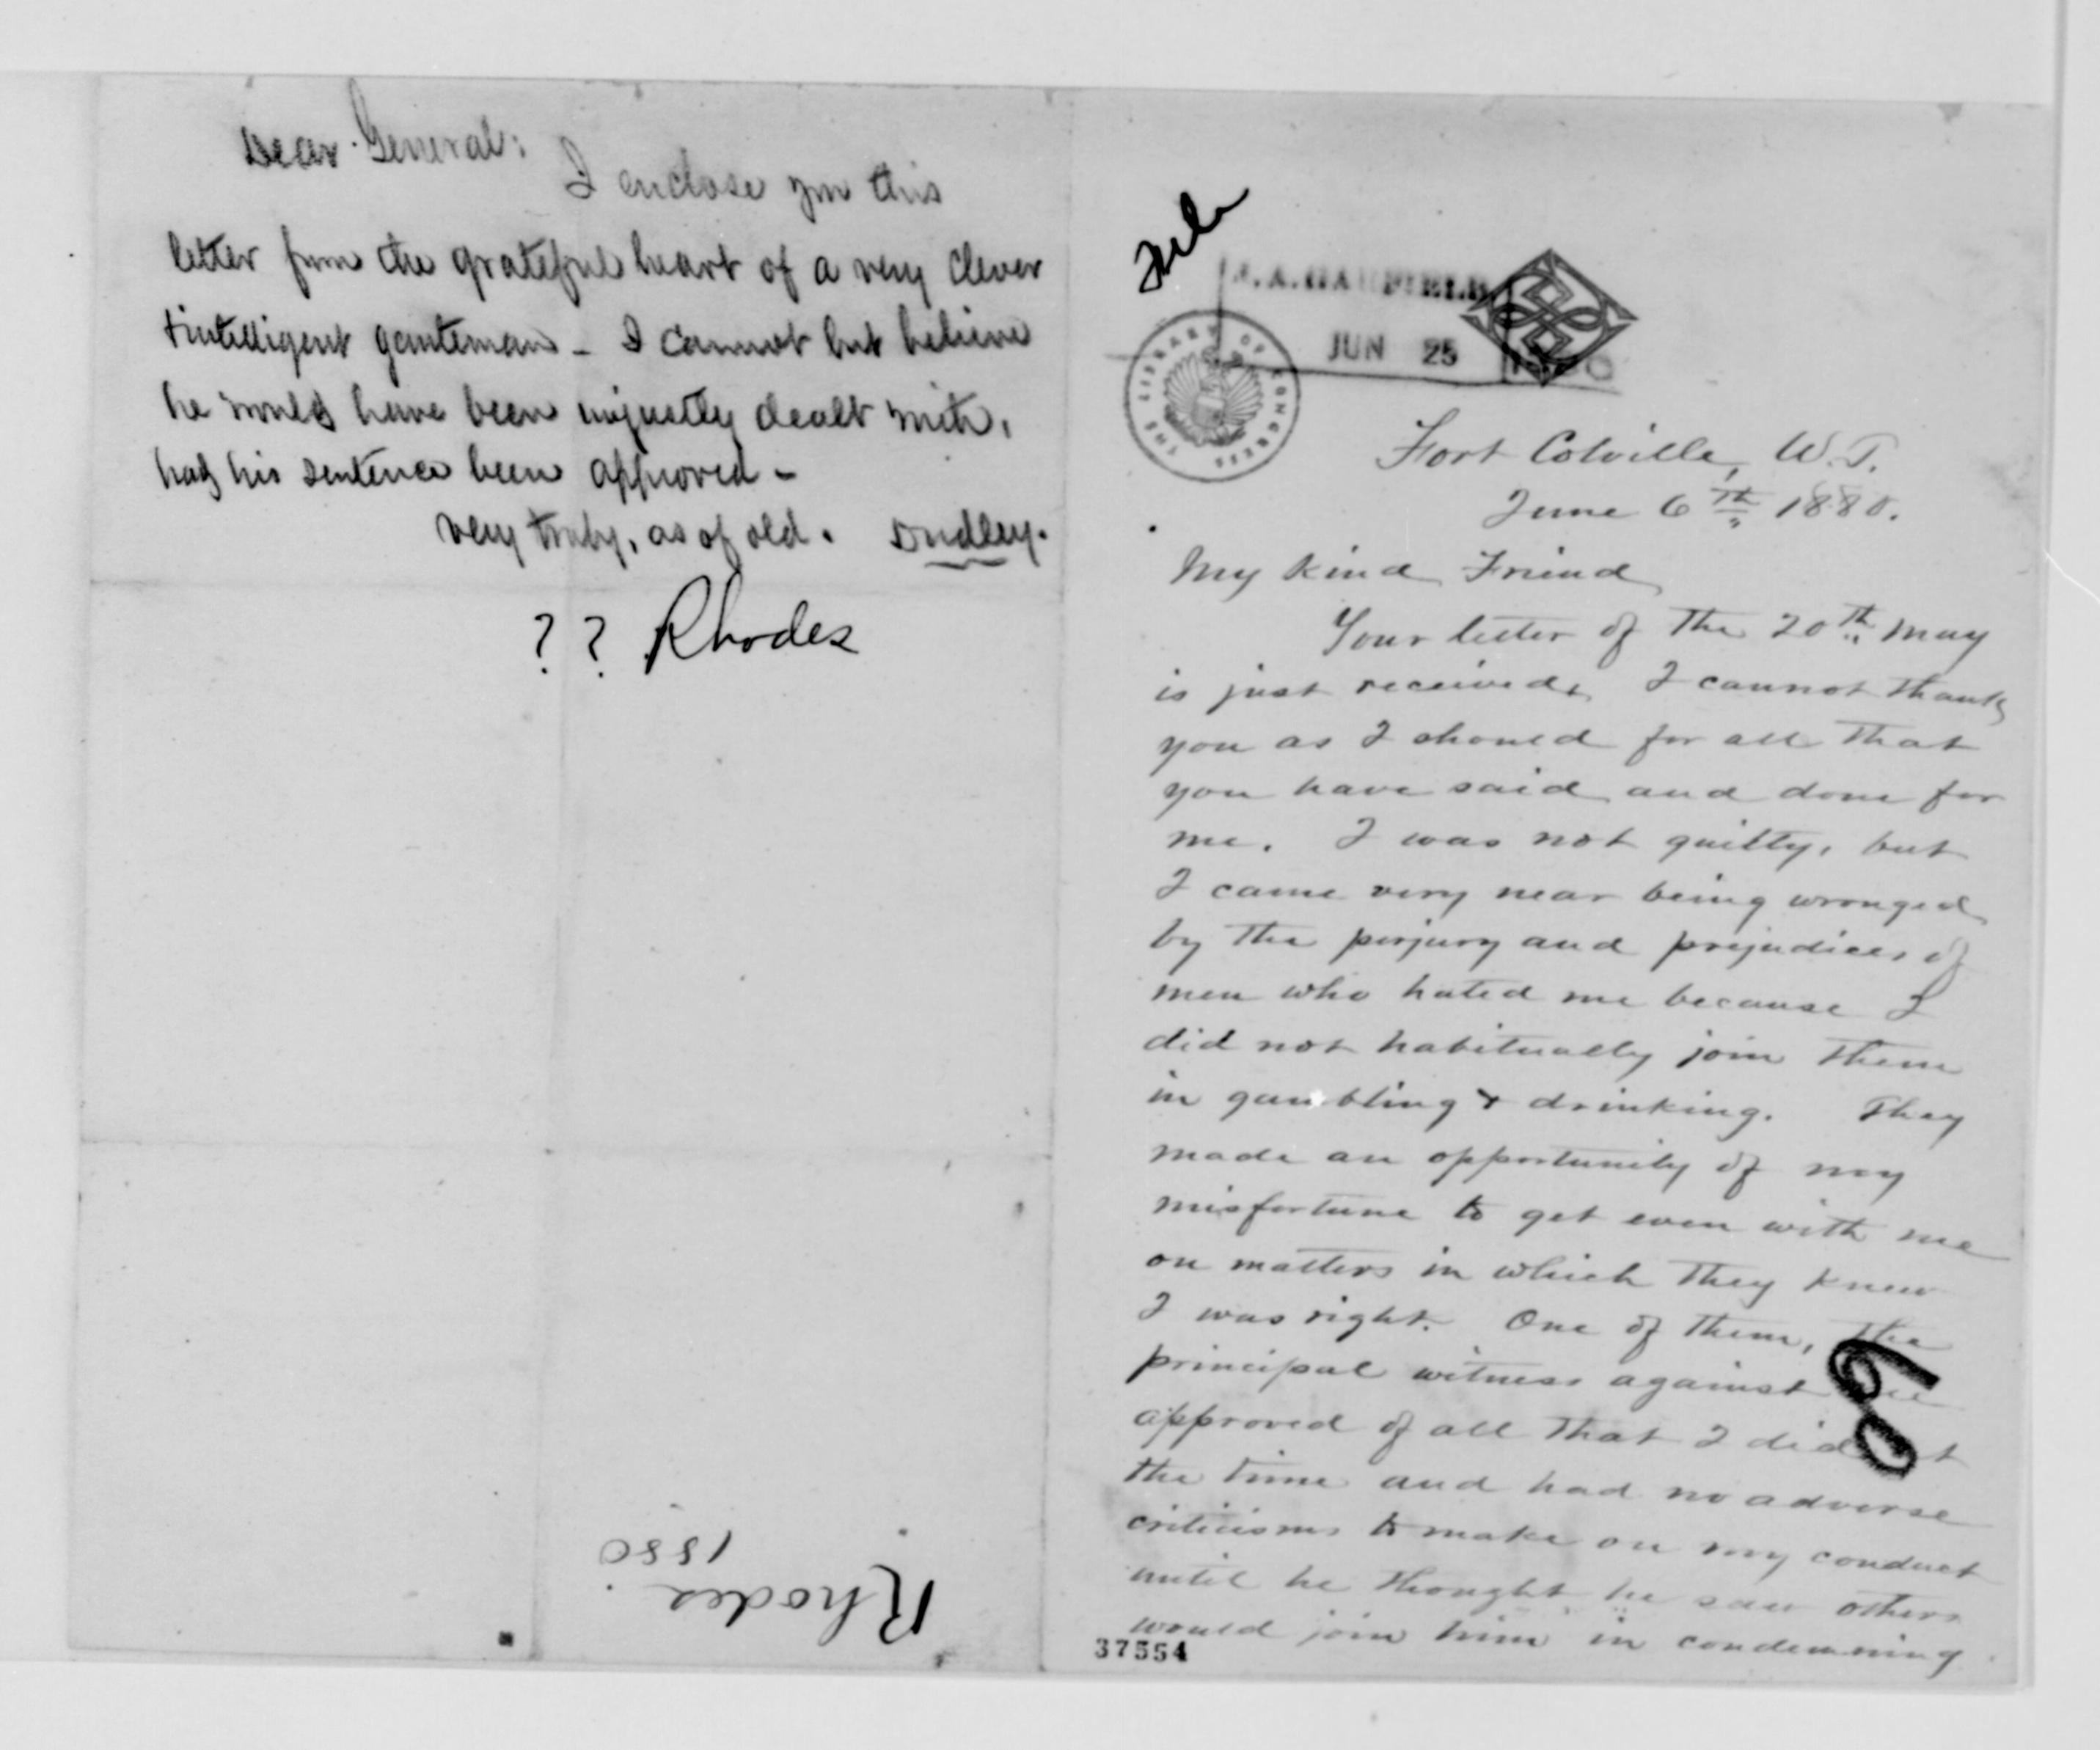 Dear General:
I enclose you this
letter from the grateful heart of a very clever
& intelligent genteman - I cannot but believe
he would have been unjustly dealt with,
had his sentence been approved -
very truly, as of old. Dudley.
? ? Rhodes
Rhodes
1880
File
J.A.GARFIELD
JUN 25 1880
THE LIBRARY OF CONGRESS
Fort Colville, W.T.
June 6th 1880.
My kind Friend
Your letter of the 20th May
is just received. I cannot thank
you as I should for all that
you have said and done for
me. I was not guilty, but
I came very near being wronged
by the perjury and prejudices of
men who hated me because I
did not habitually join them
in gambling & drinking. They
made an opportunity of my
misfortune to get even with me
on matters in which they knew
I was right. One of them, the
principal witness against me
approved of all that I did at
the time and had no adverse
criticisms to make on my conduct
until he thought he saw others
would join him in condemning
37554